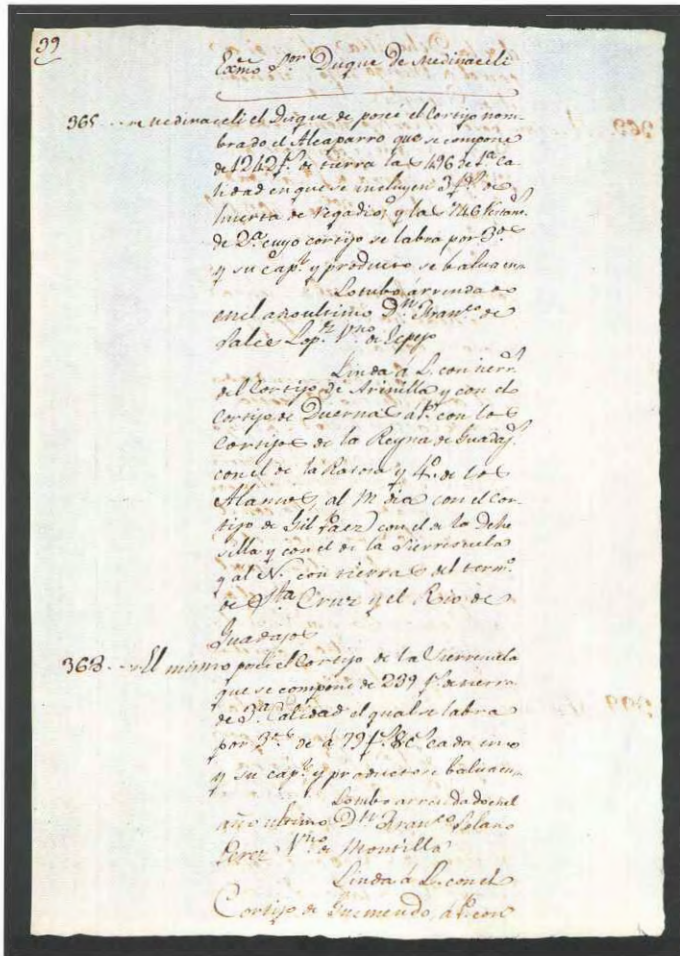 39
Exmo Sor Duque de Medinaceli
365 Medinaceli el Duque de poseé el Cortijo nom-
brado el Alcaparro que se compone
de 1242 fs. de tierra las 496 de 1a ca-
lidad en que se incluyen 3 fs. de
huerta de regadio, y las 746 restans.
de 2a cuyo cortijo se labra por 3os
y su capl. y producto se balua en
Lo tubo arrendado
en el año ultimo Dn. Franco de
Salces Lopz. Vno. de Espejo
Linda á L. con tierrs.
del Cortijo de Arinilla y con el
Cortijo de Duernas á P. con los
Cortijos de la Reyna de Guadajs.
con el de la y 4o. de los
Alamos, al M dia con el Cor-
tijo de Gil Paez con el de la Dehe-
silla y con el de la Sierresuela
y al N. con tierras del termo.
de Sta Cruz y el Rio de
Guadajos
368 El mismo poseé el Cortijo de la Sierresuela
que se compone de 239 fs. de tierra
de 3a. Calidad el qual se labra
por 3os de á 79 fs. 8 cs. cada uno
y su capl. y producto se balua en
Lo tubo arrendado en el
año ultimo Dn Franco Solano
Perez Vno de Montilla
Linda á L. con el
Cortijo de á P. con